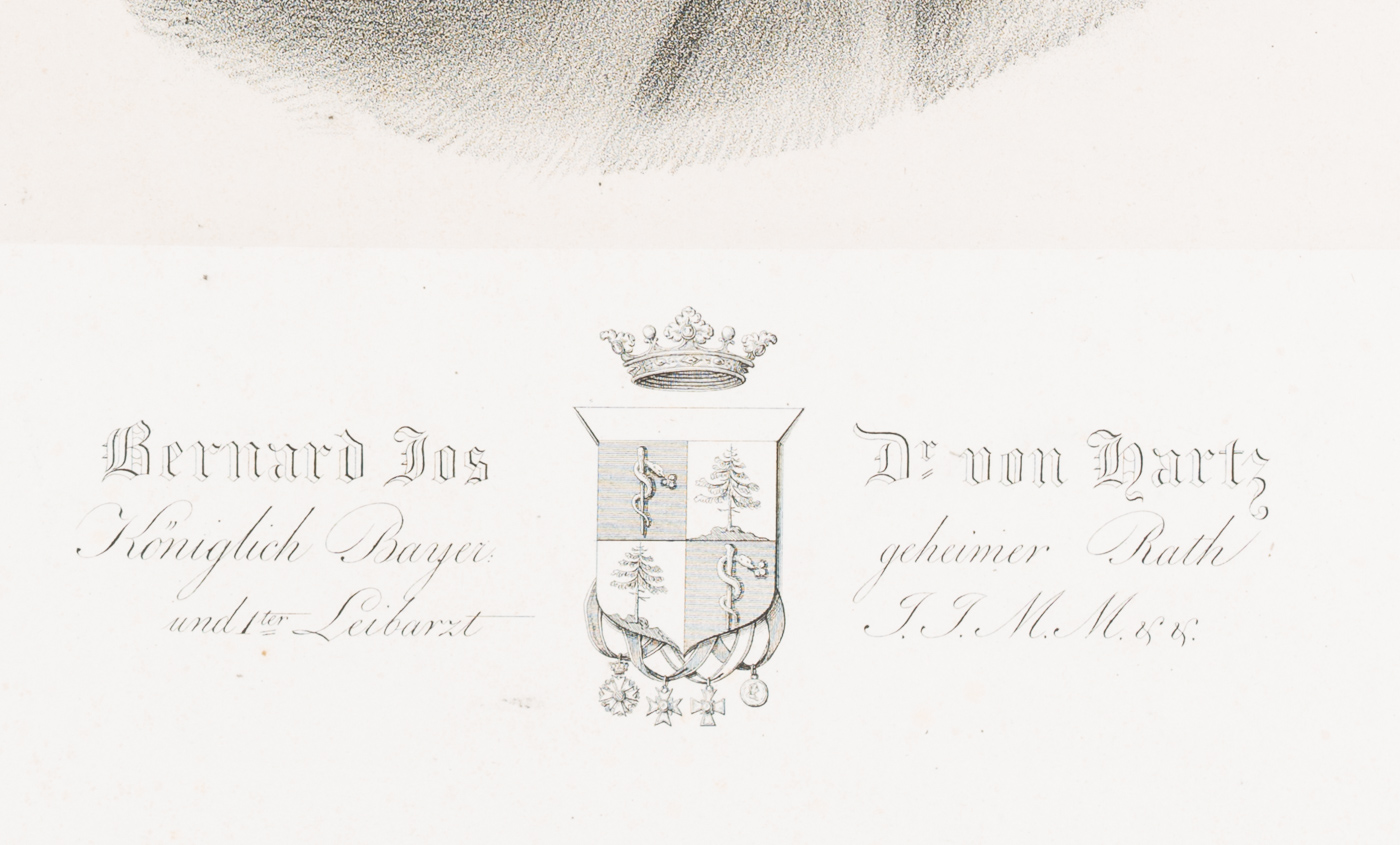 Bernard Jos Dr. von Hartz
Königlich Bayer. geheimer Rath
und 1ter Leibarzt J. J. M. M. &c &c.